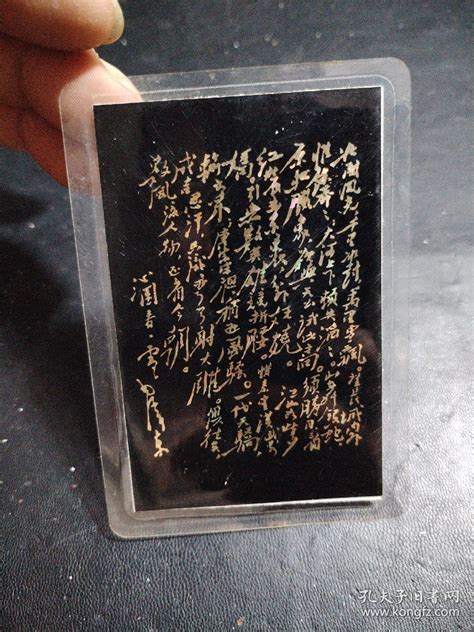 北国风光千里冰封万里雪飘。望长城内外
惟余莽莽大河上下顿失滔滔。山舞银蛇
原驰腊象欲与天公试比高。须晴日看
红装素裹分外妖娆。江山如此多
娇引无数英雄竞折腰。惜秦皇汉武略
输文采唐宗宋祖稍逊风骚。一代天骄
成吉思汗只识弯弓射大雕。俱往矣
数风流人物还看今朝。
沁园春雪 毛泽东
孔夫子旧书网
www.kongfz.com